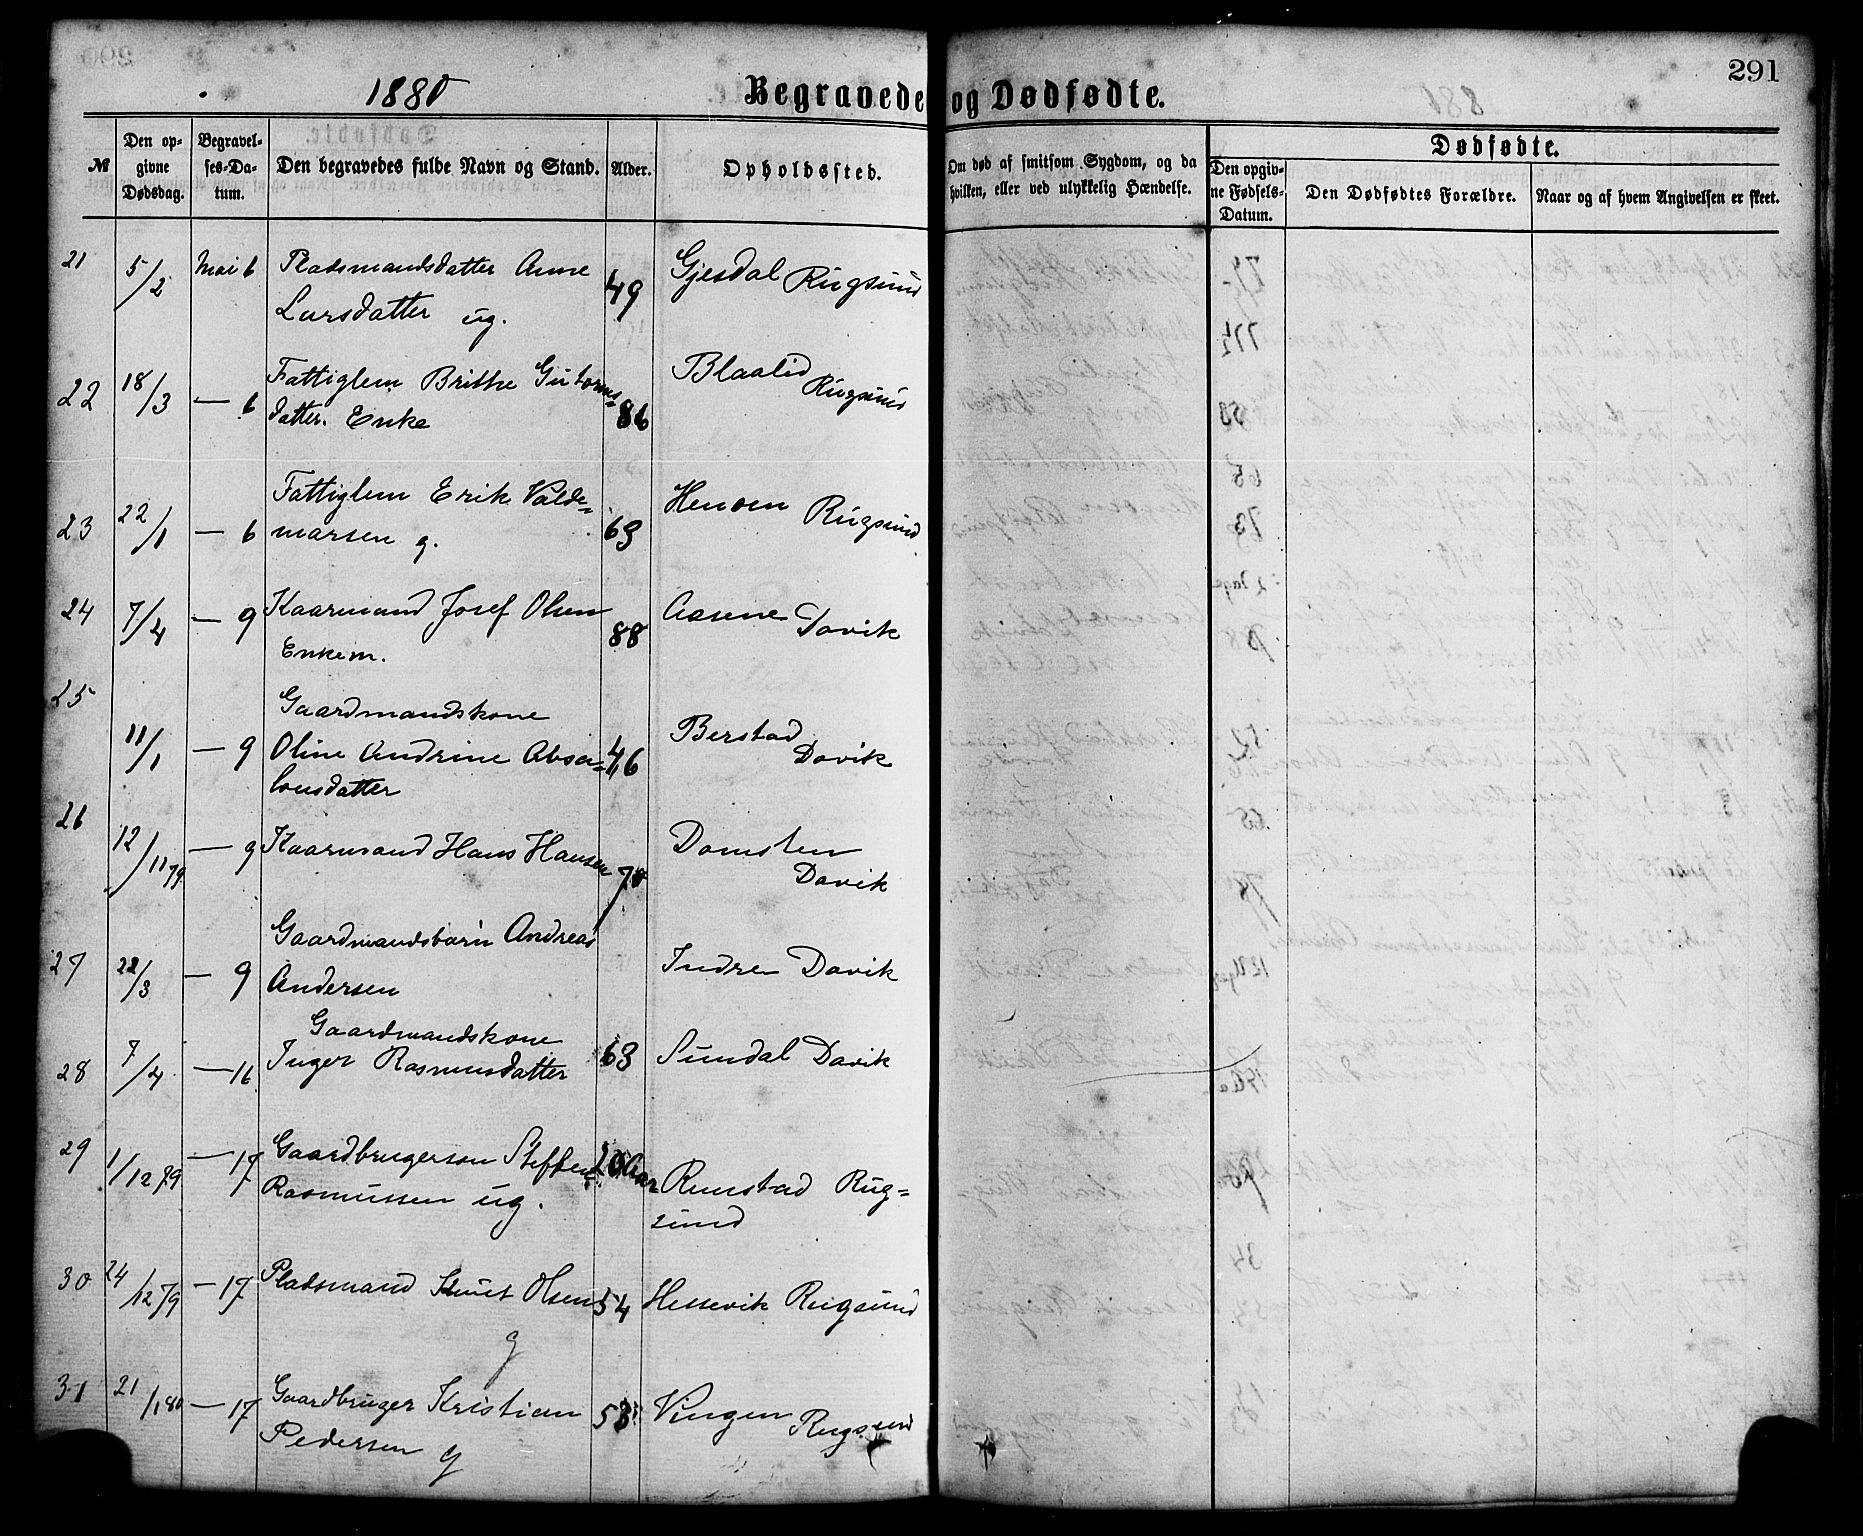 291
1880
Begravede og Dødfødte.
№ Den opgivne Dødsdag. Begravelses-Datum. Den begravedes fulde Navn og Stand. Alder. Opholdssted. Om død af smitsom Sygdom, og da hvilken, eller ved ulykkelig Hændelse. Dødfødte. Den opgivne Fødsels-Datum. Den Dødfødtes Forældre. Naar og af hvem Angivelsen er skeet.
21 5/2 Mai 6 Pladsmandsdatter Anne
Larsdatter ug. 49 Gjesdal Rugsund
22 18/3 — 6 Fattiglem Brithe Gutorms-
datter. Enke 86 Blaalid Rugsund
23 22/1 — 6 Fattiglem Erik Valde-
marsen g. 63 Henøen Rugsund
24 7/4 — 9 Kaarmand Josef Olsen
Enkem. 88 Aasene Davik
25 Gaardmandskone
11/1 — 9 Oline Andrine Absa-
lonsdatter 46 Berstad Davik
26 12/11 79 — 9 Kaarmand Hans Hansen 78 Domsten
Davik
27 22/3 — 9 Gaardmandsbarn Andreas
Andersen Indre Davik
Gaardmandskone
28 7/4 — 16 Inger Rasmusdatter 63 Sundal Davik
29 1/12 79 — 17 Gaardbrugerson Steffen
Rasmussen ug. 20 Aar Runstad Rug-
sund
30 24/12 79 — 17 Pladsmand Knut Olsen
g 54 Hessevik Rugsund
31 21/1 80 — 17 Gaardbruger Kristian
Pedersen g 53 Vingen Rugsund